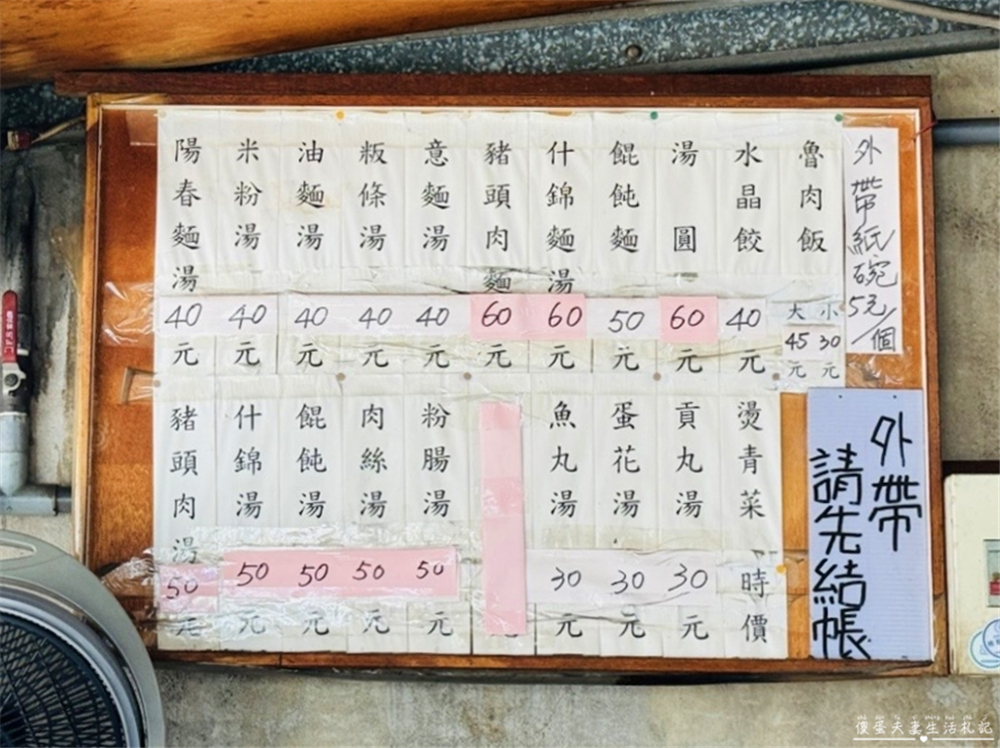 外帶紙碗
5元/個
魯肉飯
大 小
45 30
元 元
水晶餃 40元
湯圓 60元
餛飩麵 50元
什錦麵湯 60元
豬頭肉麵 60元
意麵湯 40元
粄條湯 40元
油麵湯 40元
米粉湯 40元
陽春麵湯 40元
外帶
請先結帳
燙青菜 時價
貢丸湯 30元
蛋花湯 30元
魚丸湯 30元
粉腸湯 50元
肉絲湯 50元
餛飩湯 50元
什錦湯 50元
豬頭肉湯 50元
傻蛋夫妻生活札記